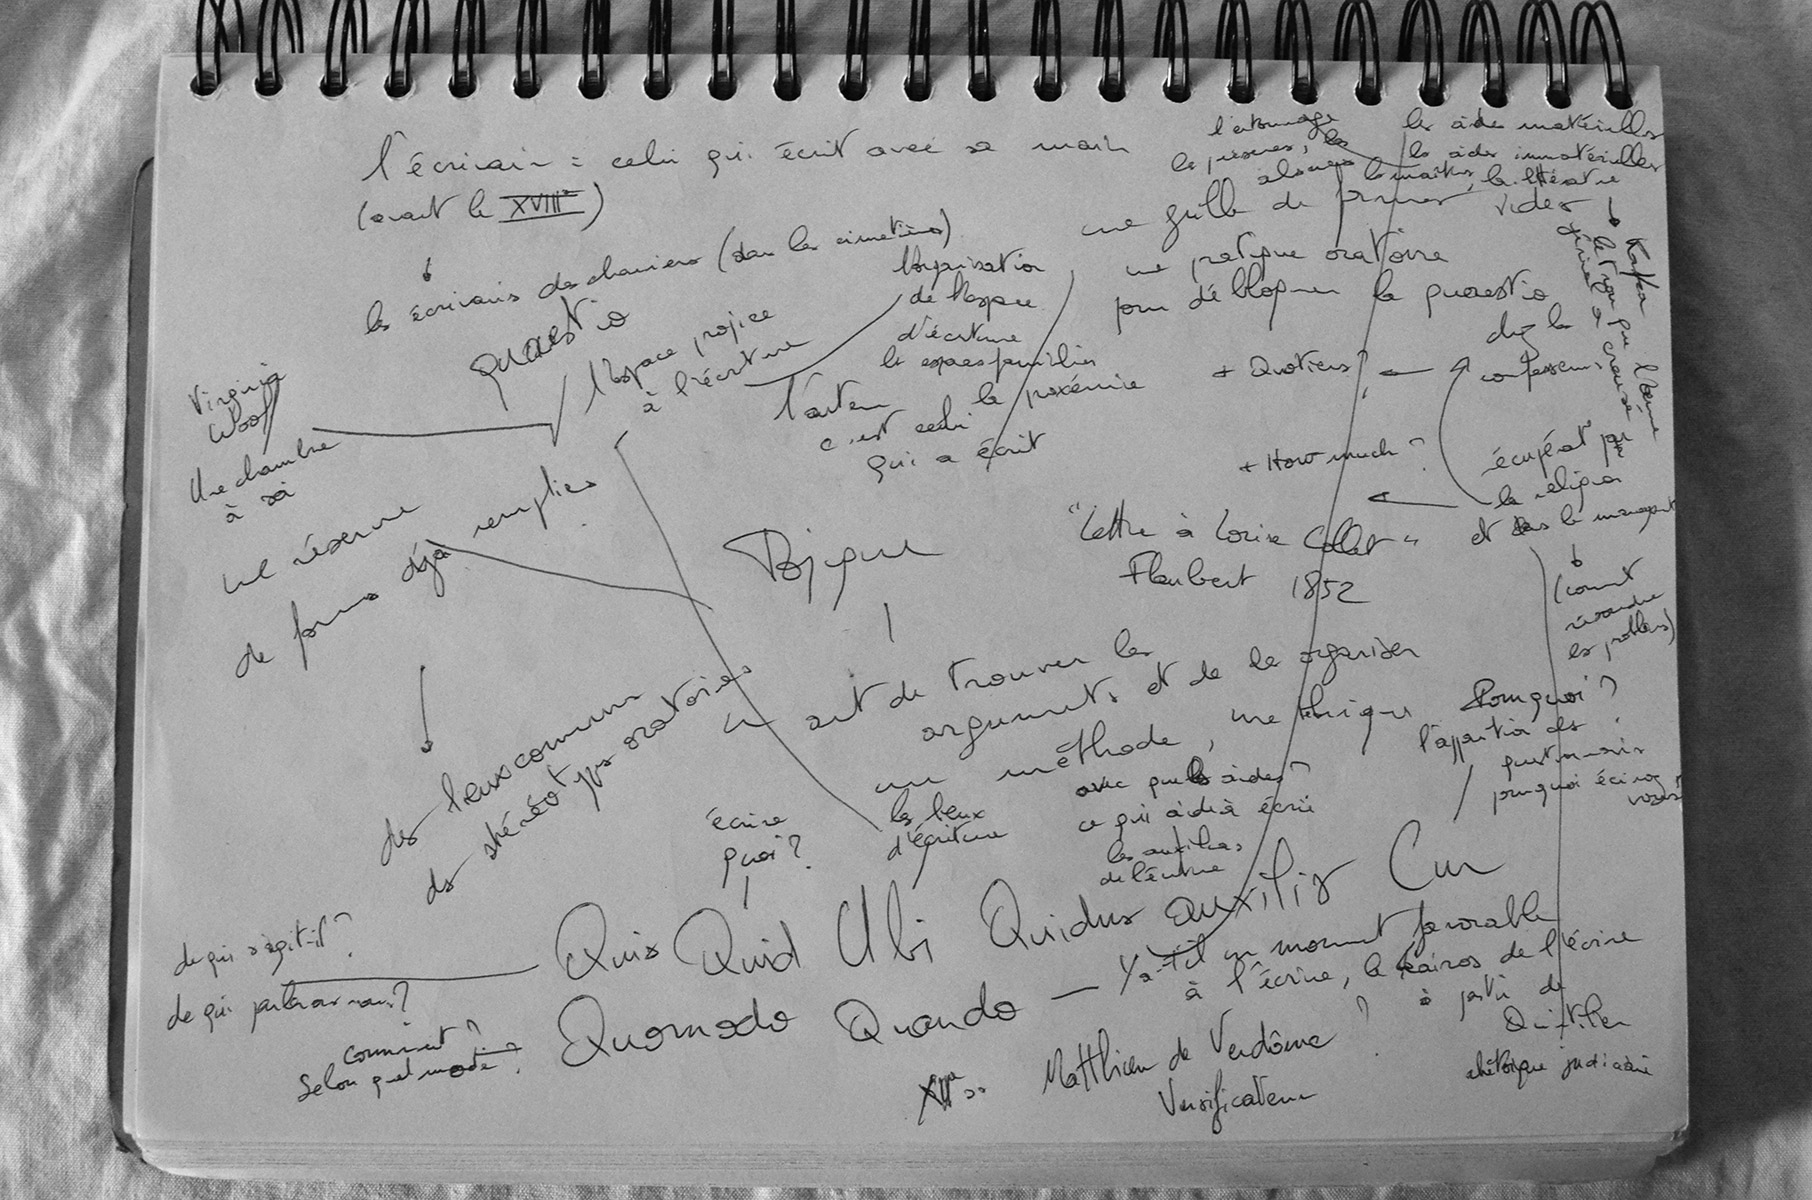 l'écrivain = celui qui écrit avec sa main
(avant le XVIIIe)
les écrivains des charniers (dans les cimetières)
quaestio
l'espace propice
à l'écriture
l'organisation
de l'espace
d'écriture
les espaces familiers
la proxémie
l'auteur
c'est celui
qui a écrit
l'entourage
les
les aides matérielles
les aides immatérielles
les maîtres, la littérature
une grille de
vides
une pratique oratoire
pour débloquer la quaestio
Kafka
chez les
confesseurs
+ Quotiens?
+ How much?
par
la religion
et dans le management
(comment
résoudre
les problèmes)
Virginia
Woolf
Une chambre
à soi
une réserve
de formes déjà remplies
des lieux communs
des stéréotypes oratoires
Topique
"Lettre à Louise Collet"
Flaubert 1852
un art de trouver les
arguments et de les organiser
une méthode, une technique
Pourquoi?
l'apparition des
questionnaires
pourquoi écrivez
vous?
écrire
quoi?
les lieux
d'écriture
avec quelles aides?
ce qui aide à écrire
les auxiliaires
de l'écriture
de qui s'agit-il?
de qui parlerons nous?
Quis Quid Ubi Quibus auxiliis Cur
Quomodo Quando — Y a-t-il un moment favorable
à l'écrire, le kairos de l'écrire
à partir de
Quintilien
rhétorique judiciaire
comment?
Selon quel mode?
Matthieu de Vendôme?
Versificateur